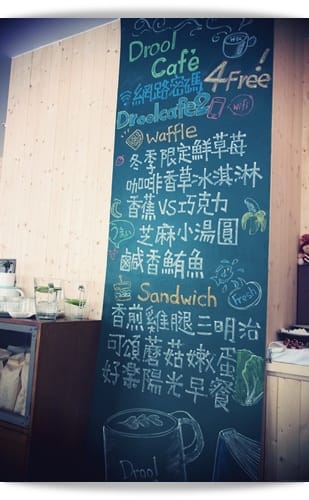 Drool
Café
4 Free!
網路密碼
wifi
Droolcafe2
waffle
冬季限定鮮草莓
咖啡香草冰淇淋
香蕉VS巧克力
芝麻小湯圓
鹹香鮪魚
Fresh
Sandwich
香煎雞腿三明治
可頌蘑菇嫩蛋
好樂陽光早餐
Drool